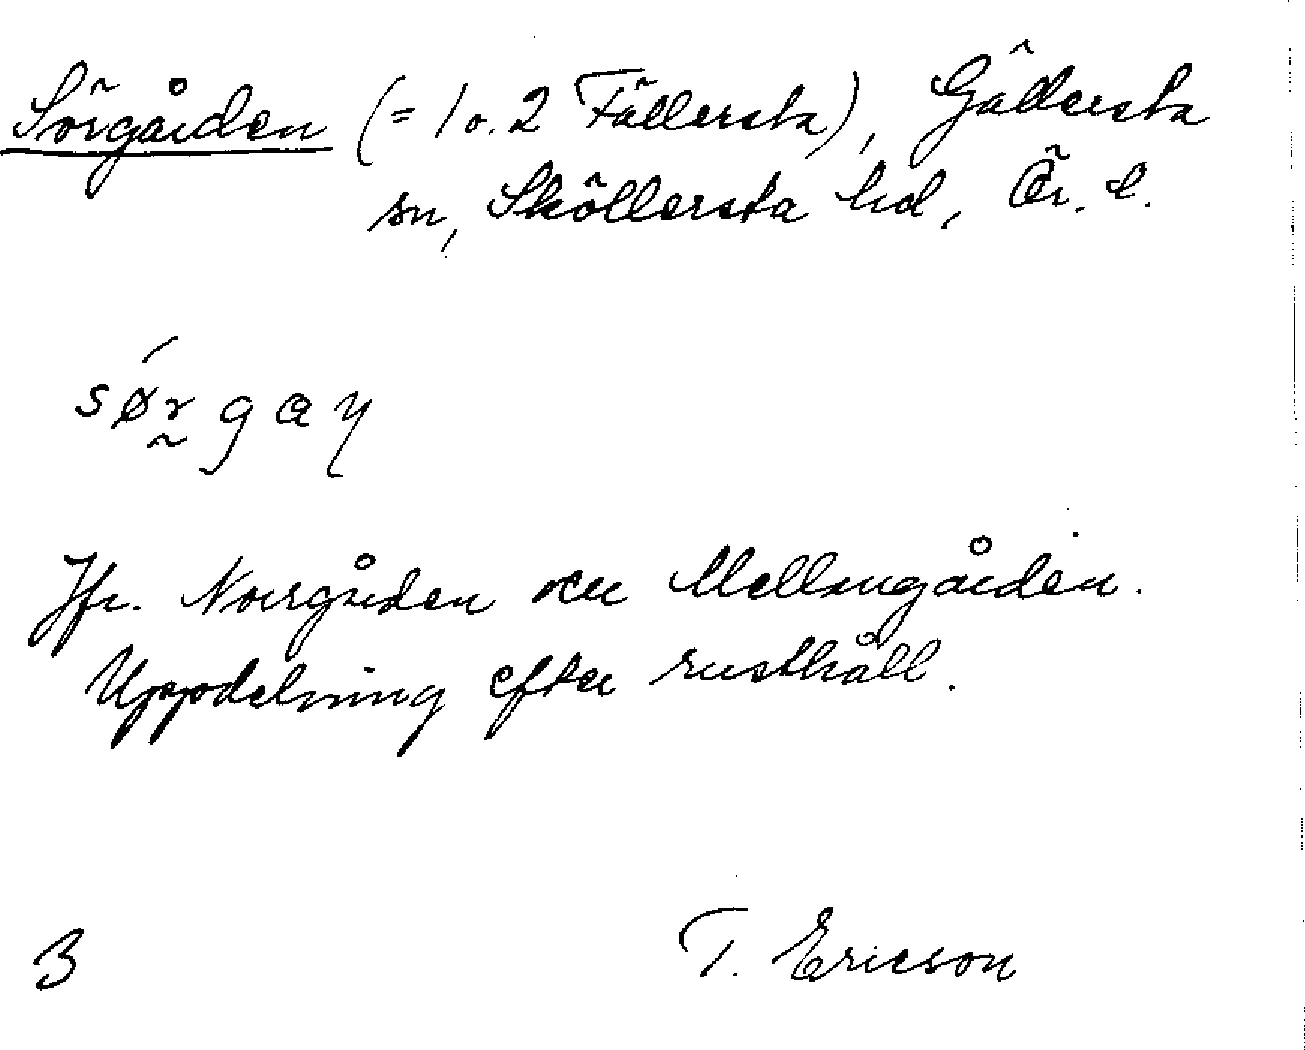 Sörgården (= 1 o. 2 Fällersta), Gällersta
sn, Sköllersta hd, Ör. l.
sø´r̰gaŋ
Jfr. Norrgården och Mellangården.
Uppdelning efter rusthåll.
3 T. Ericson